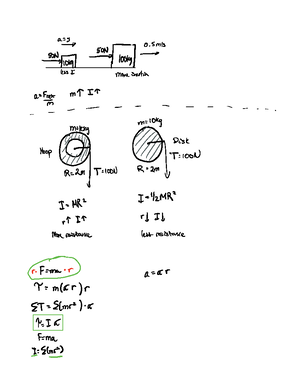 a=5
50N
10kg
less I
50N
100kg
0.5m/s
More Inertia
a=Fnet/m
m↑ I↑
m=10kg
Hoop
T=100N
R=2m
m=10kg
Disk
T=100N
R=2m
I=MR²
r↑ I↑
Max resistance
I=1/2MR²
r↓ I↓
less resistance
r·F=ma·r
τ=m(αr)r
a=αr
Στ=Σ(mr²)·α
τ=Iα
F=ma
I=Σ(mr²)